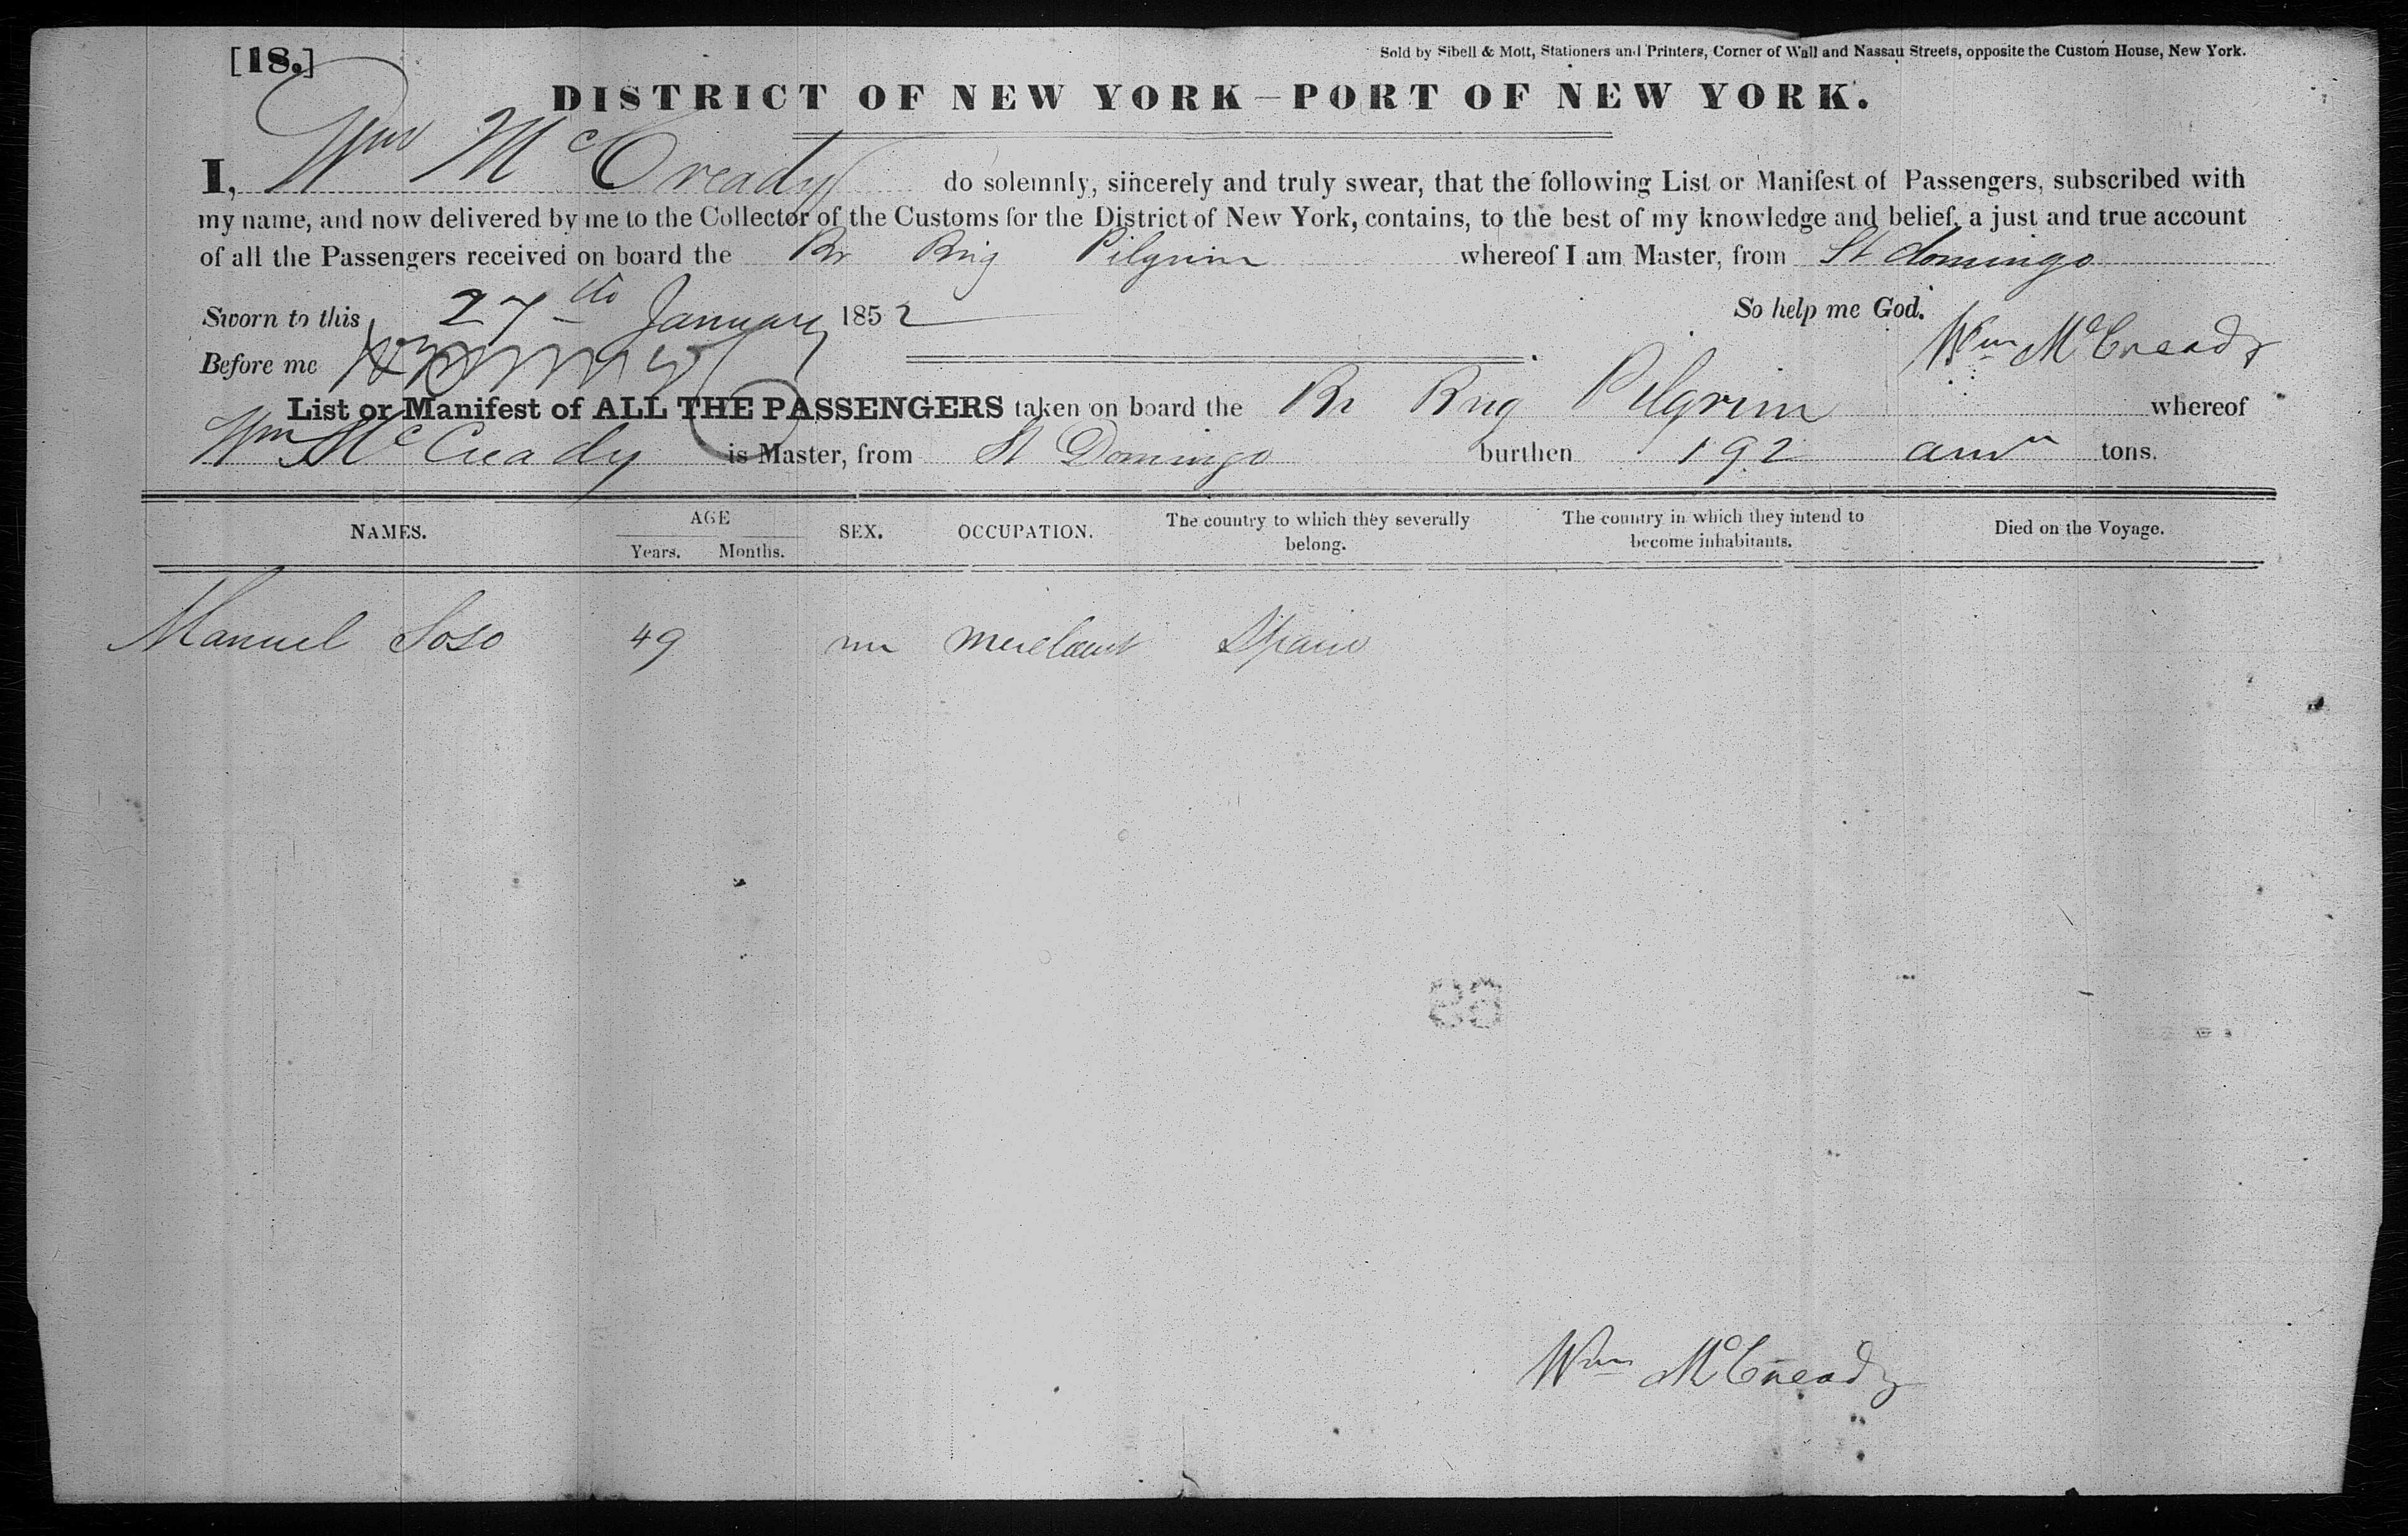 [18.]
Sold by Sibell & Mott, Stationers and Printers, Corner of Wall and Nassau Streets, opposite the Custom House, New York.
DISTRICT OF NEW YORK—PORT OF NEW YORK.
I, Wm McCready do solemnly, sincerely and truly swear, that the following List or Manifest of Passengers, subscribed with
my name, and now delivered by me to the Collector of the Customs for the District of New York, contains, to the best of my knowledge and belief, a just and true account
of all the Passengers received on board the Br Brig Pilgrim whereof I am Master, from St domingo
Sworn to this 27th January 1852 So help me God.
Before me Wm McCready
List or Manifest of ALL THE PASSENGERS taken on board the Br Brig Pilgrim whereof
Wm McCready is Master, from St Domingo burthen 192 tons.
NAMES. AGE Years. Months. SEX. OCCUPATION. The country to which they severally belong. The country in which they intend to become inhabitants. Died on the Voyage.
Manuel Soso 49 m merchant Spain
Wm McCready